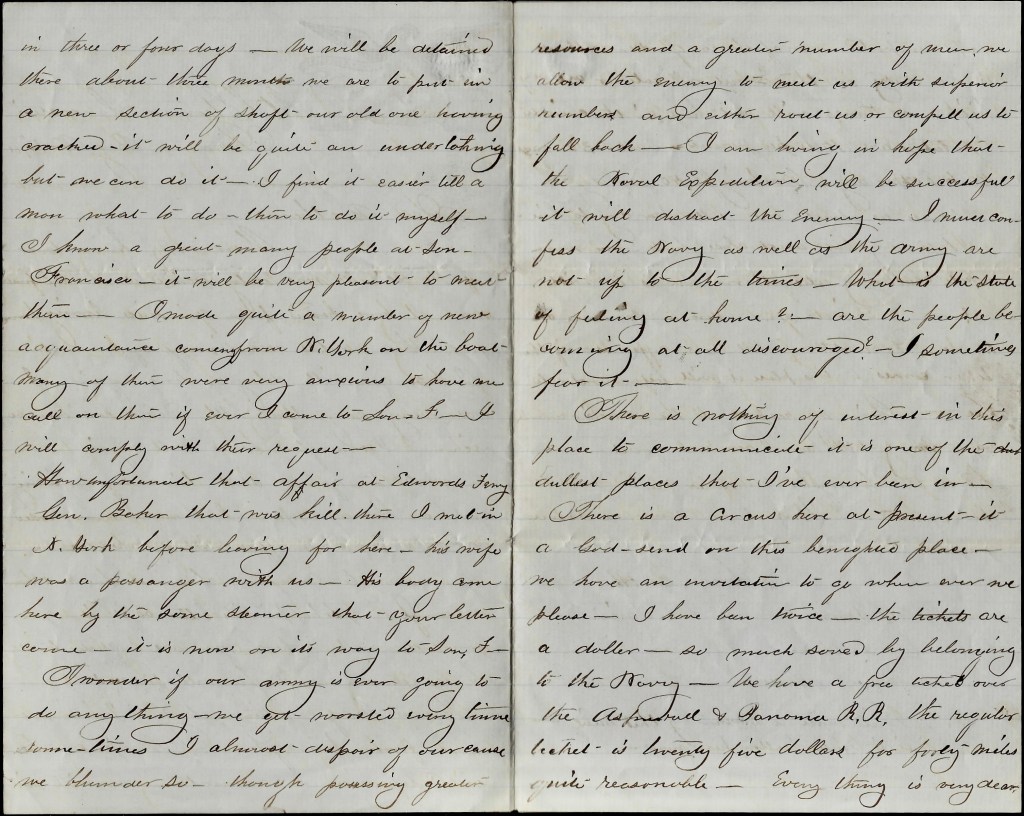 in three or four days — We will be detained
there about three months we are to put in
a new section of shaft our old one having
cracked – it will be quite an undertaking
but we can do it — I find it easier till a
man what to do – than to do it myself —
I know a great many people at San-
Francisco — it will be very pleasant to meet
them — I made quite a number of new
acquaintance coming from N. York on the boat
many of them were very anxious to have me
call on them if ever I come to San F — I
will comply with their request —
How unfortunate that affair at Edwards Ferry
Gen. Baker that was kill. there I met in
N. York before leaving for here — his wife
was a passanger with us — His body came
here by the same steamer that your letter
came — it is now on its way to San, F —
I wonder if our army is ever going to
do any thing — we get worsted every time
some-times I almost despair of our cause
we blunder so — though possessing greater
resources and a greater number of men, we
allow the enemy to meet us with superior
numbers and either rout us or compell us to
fall back — I am living in hope that
the Naval Expedition, will be successful
it will distract the Enemy — I must con-
fess the Navy as well as the army are
not up to the times — What is the state
of feeling at home? — are the people be-
coming at all discouraged? — I sometimes
fear it —
There is nothing of interest in this
place to communicate it is one of the
dullest places that I've ever been in —
There is a Circus here at present — it
a God-send on this benighted place —
we have an invitation to go when ever we
please — I have been twice — the tickets are
a dollar — so much saved by belonging
to the Navy — We have a free ticket over
the Aspinwall & Panama R.R. the regular
ticket is twenty five dollars for forty miles
quite reasonable — Every thing is very dear,